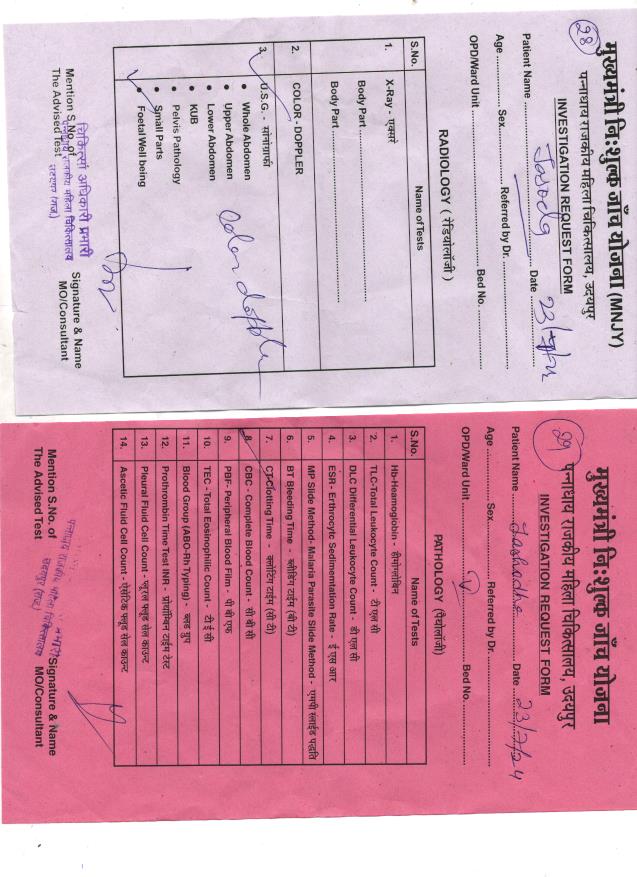 28
मुख्यमंत्री निःशुल्क जाँच योजना (MNJY)
पन्नाधाय राजकीय महिला चिकित्सालय, उदयपुर
INVESTIGATION REQUEST FORM
Patient Name ........ Jasoda ........ Date ........ 23/7/24
Age ........ Sex ........ Referred by Dr. ........
OPD/Ward Unit ........ Bed No. ........
RADIOLOGY ( रेडियोलॉजी )
S.No. Name of Tests
1. X-Ray - एक्सरे
Body Part ........
Body Part ........
2. COLOR - DOPPLER
3. U.S.G. - सोनोग्राफी
• Whole Abdomen
• Upper Abdomen
• Lower Abdomen
• KUB
• Pelvis Pathology
• Small Parts
• Foetal Well being
Color doppler
चिकित्सा अधिकारी प्रभारी
पन्नाधाय राजकीय महिला चिकित्सालय
उदयपुर (राज.)
Mention S.No. of
The Advised Test
Signature & Name
MO/Consultant
29
मुख्यमंत्री निःशुल्क जाँच योजना
पन्नाधाय राजकीय महिला चिकित्सालय, उदयपुर
INVESTIGATION REQUEST FORM
Patient Name ........ Date ........ 23/7/24
Age ........ Sex ........ Referred by Dr. ........
OPD/Ward Unit ........ Bed No. ........
PATHOLOGY (पैथोलॉजी)
S.No. Name of Tests
1. Hb-Haemoglobin - हीमोग्लोबिन
2. TLC-Total Leukocyte Count - टी एल सी
3. DLC Differential Leukocyte Count - डी एल सी
4. ESR - Erthrocytc Sedimentation Rate - ई एस आर
5. MP Slide Method- Malaria Parasite Slide Method - एमपी स्लाईड पद्धति
6. BT Bleeding Time - ब्लीडिंग टाईम (बी टी)
7. CT-Clotting Time - क्लोटिंग टाईम (सी टी)
8. CBC - Complete Blood Count - सी बी सी
9. PBF- Peripheral Blood Film - पी बी एफ
10. TEC -Total Eosinophilic Count - टी ई सी
11. Blood Group (ABO-Rh Typing) - ब्लड ग्रुप
12. Prothrombin Time Test INR - प्रोथॉम्बिन टाईम टेस्ट
13. Pleural Fluid Cell Count -प्लूरल फ्लूड सेल काउन्ट
14. Ascetic Fluid Cell Count - ऐसेटिक फ्लूड सेल काउन्ट
पन्नाधाय राजकीय महिला चिकित्सालय
उदयपुर (राज.)
Mention S.No. of
The Advised Test
Signature & Name
MO/Consultant